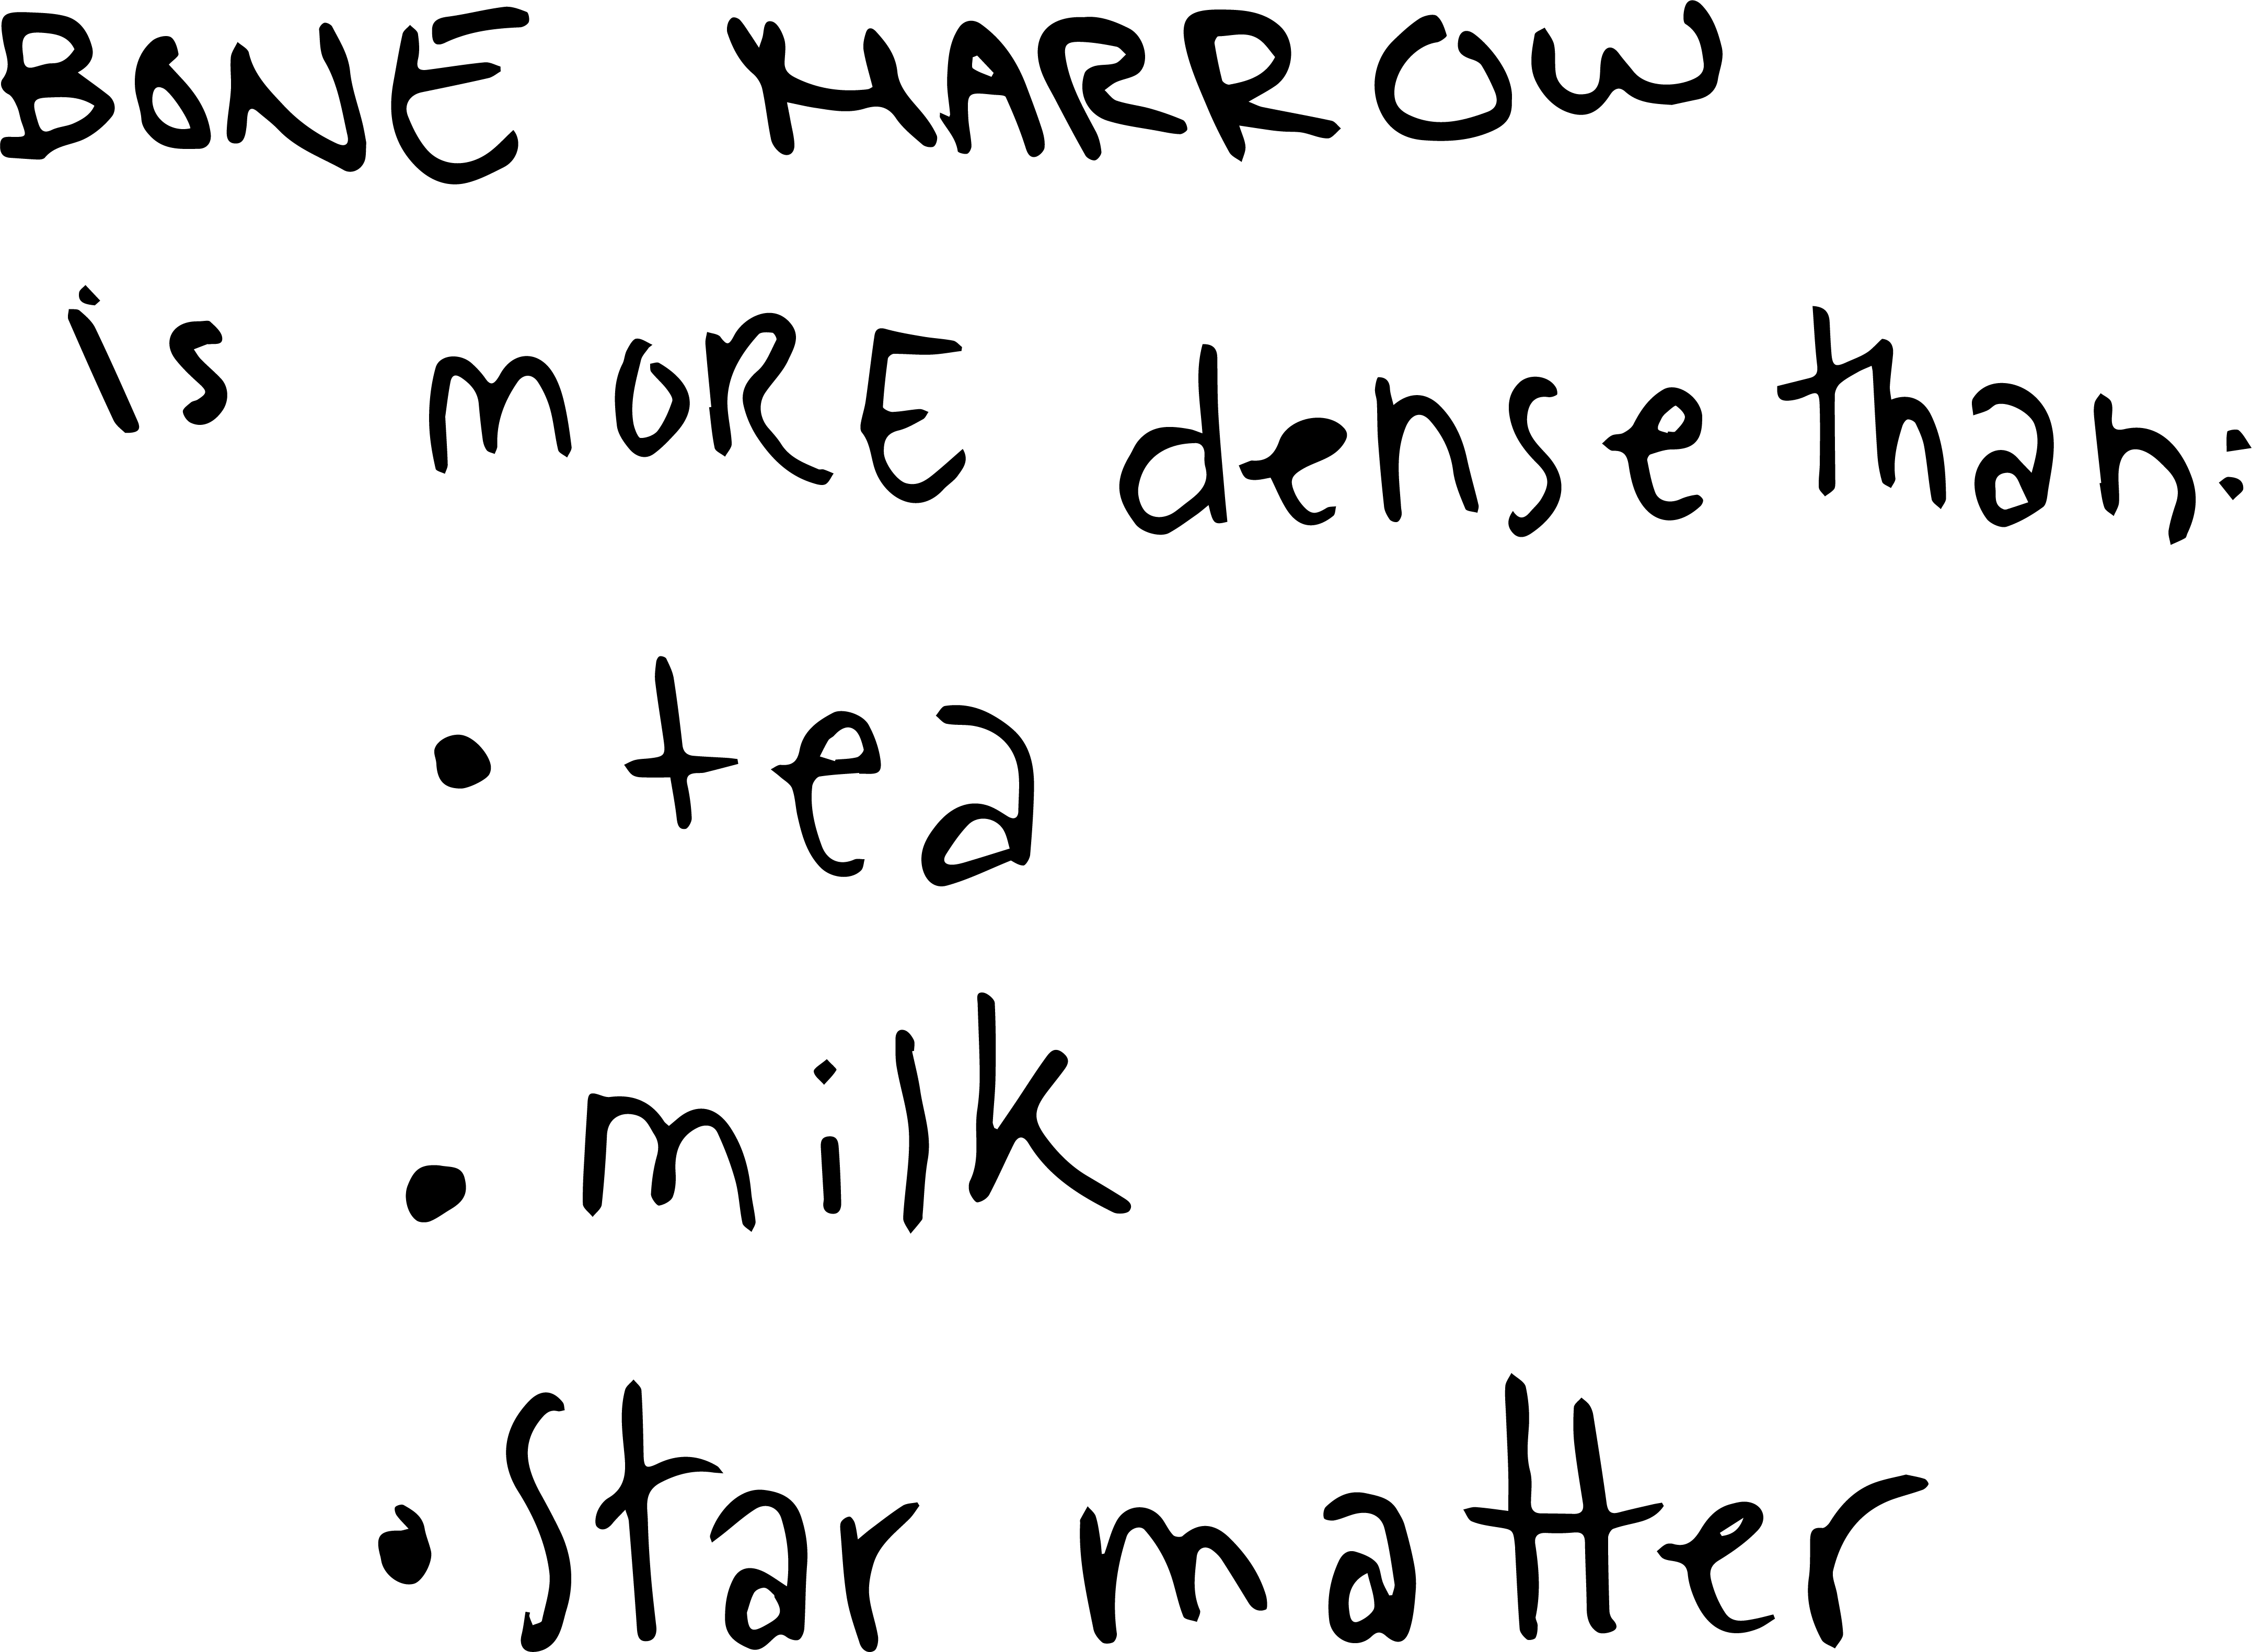 BONE MARROW
is moRE daense than:
• tea
• milk
• Star matter